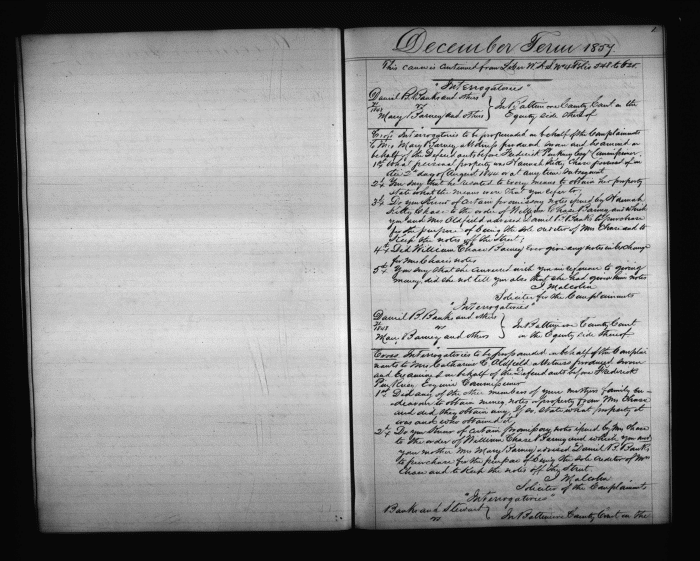 December Term 1857
This cause is continued from Liber W. H. No 4 folio 548 to 625
"Interrogatories"
Daniel B. Banks and others
vs
Mary Barney and others
In Baltimore County Court on the
Equity side thereof
Cross Interrogatories to be propounded on behalf of the Complainants
to Mrs Mary Barney a Witness produced sworn and examined on
behalf of the Defendants before Frederick Pinkney Esqr Commissioner
1st What personal property was Hannah Kitty Chase possessed of on
the 2d day of August 1840 or at any time subsequent
2d You say that he resorted to every means to obtain her property
state what the means were that you refer to;
3d Do you know of certain promissory notes signed by Hannah
Kitty Chase to the order of William Chase Barney and which
you and Mrs Oldfield advised Daniel B. Banks to purchase
for the purpose of being the sole creditor of Mrs Chase and to
keep the notes off the Street;
4th Did William Chase Barney ever give any notes in exchange
for Mrs Chase's notes
5th You say that she conversed with you in reference to giving
money, did she not tell you also that she had given him notes
J. Malcolm
Solicitor for the Complainants
"Interrogatories"
Daniel B. Banks and others
vs
Mary Barney and others
In Baltimore County Court
on the Equity side thereof
Cross Interrogatories to be propounded on behalf of the Complai
nants to Mrs Catharine C. Oldfield a Witness produced sworn
and examined on behalf of the Defendants before Frederick
Pinkney Esquire Commissioner
1st Did any of the other members of your mothers family en-
deavour to obtain money notes or property from Mrs Chase
and did they obtain any, If so, state what property it
was and who obtained it,
2d Do you know of certain promissory notes signed by Mrs Chase
to the order of William Chase Barney and which you and
your mother Mrs Mary Barney advised Daniel B. Banks
to purchase for the purpose of being the sole creditor of Mrs
Chase and to keep the notes off the Street.
J. Malcolm
Solicitor of the Complainants
"Interrogatories"
Banks and Stewart
vs
In Baltimore County Court on the